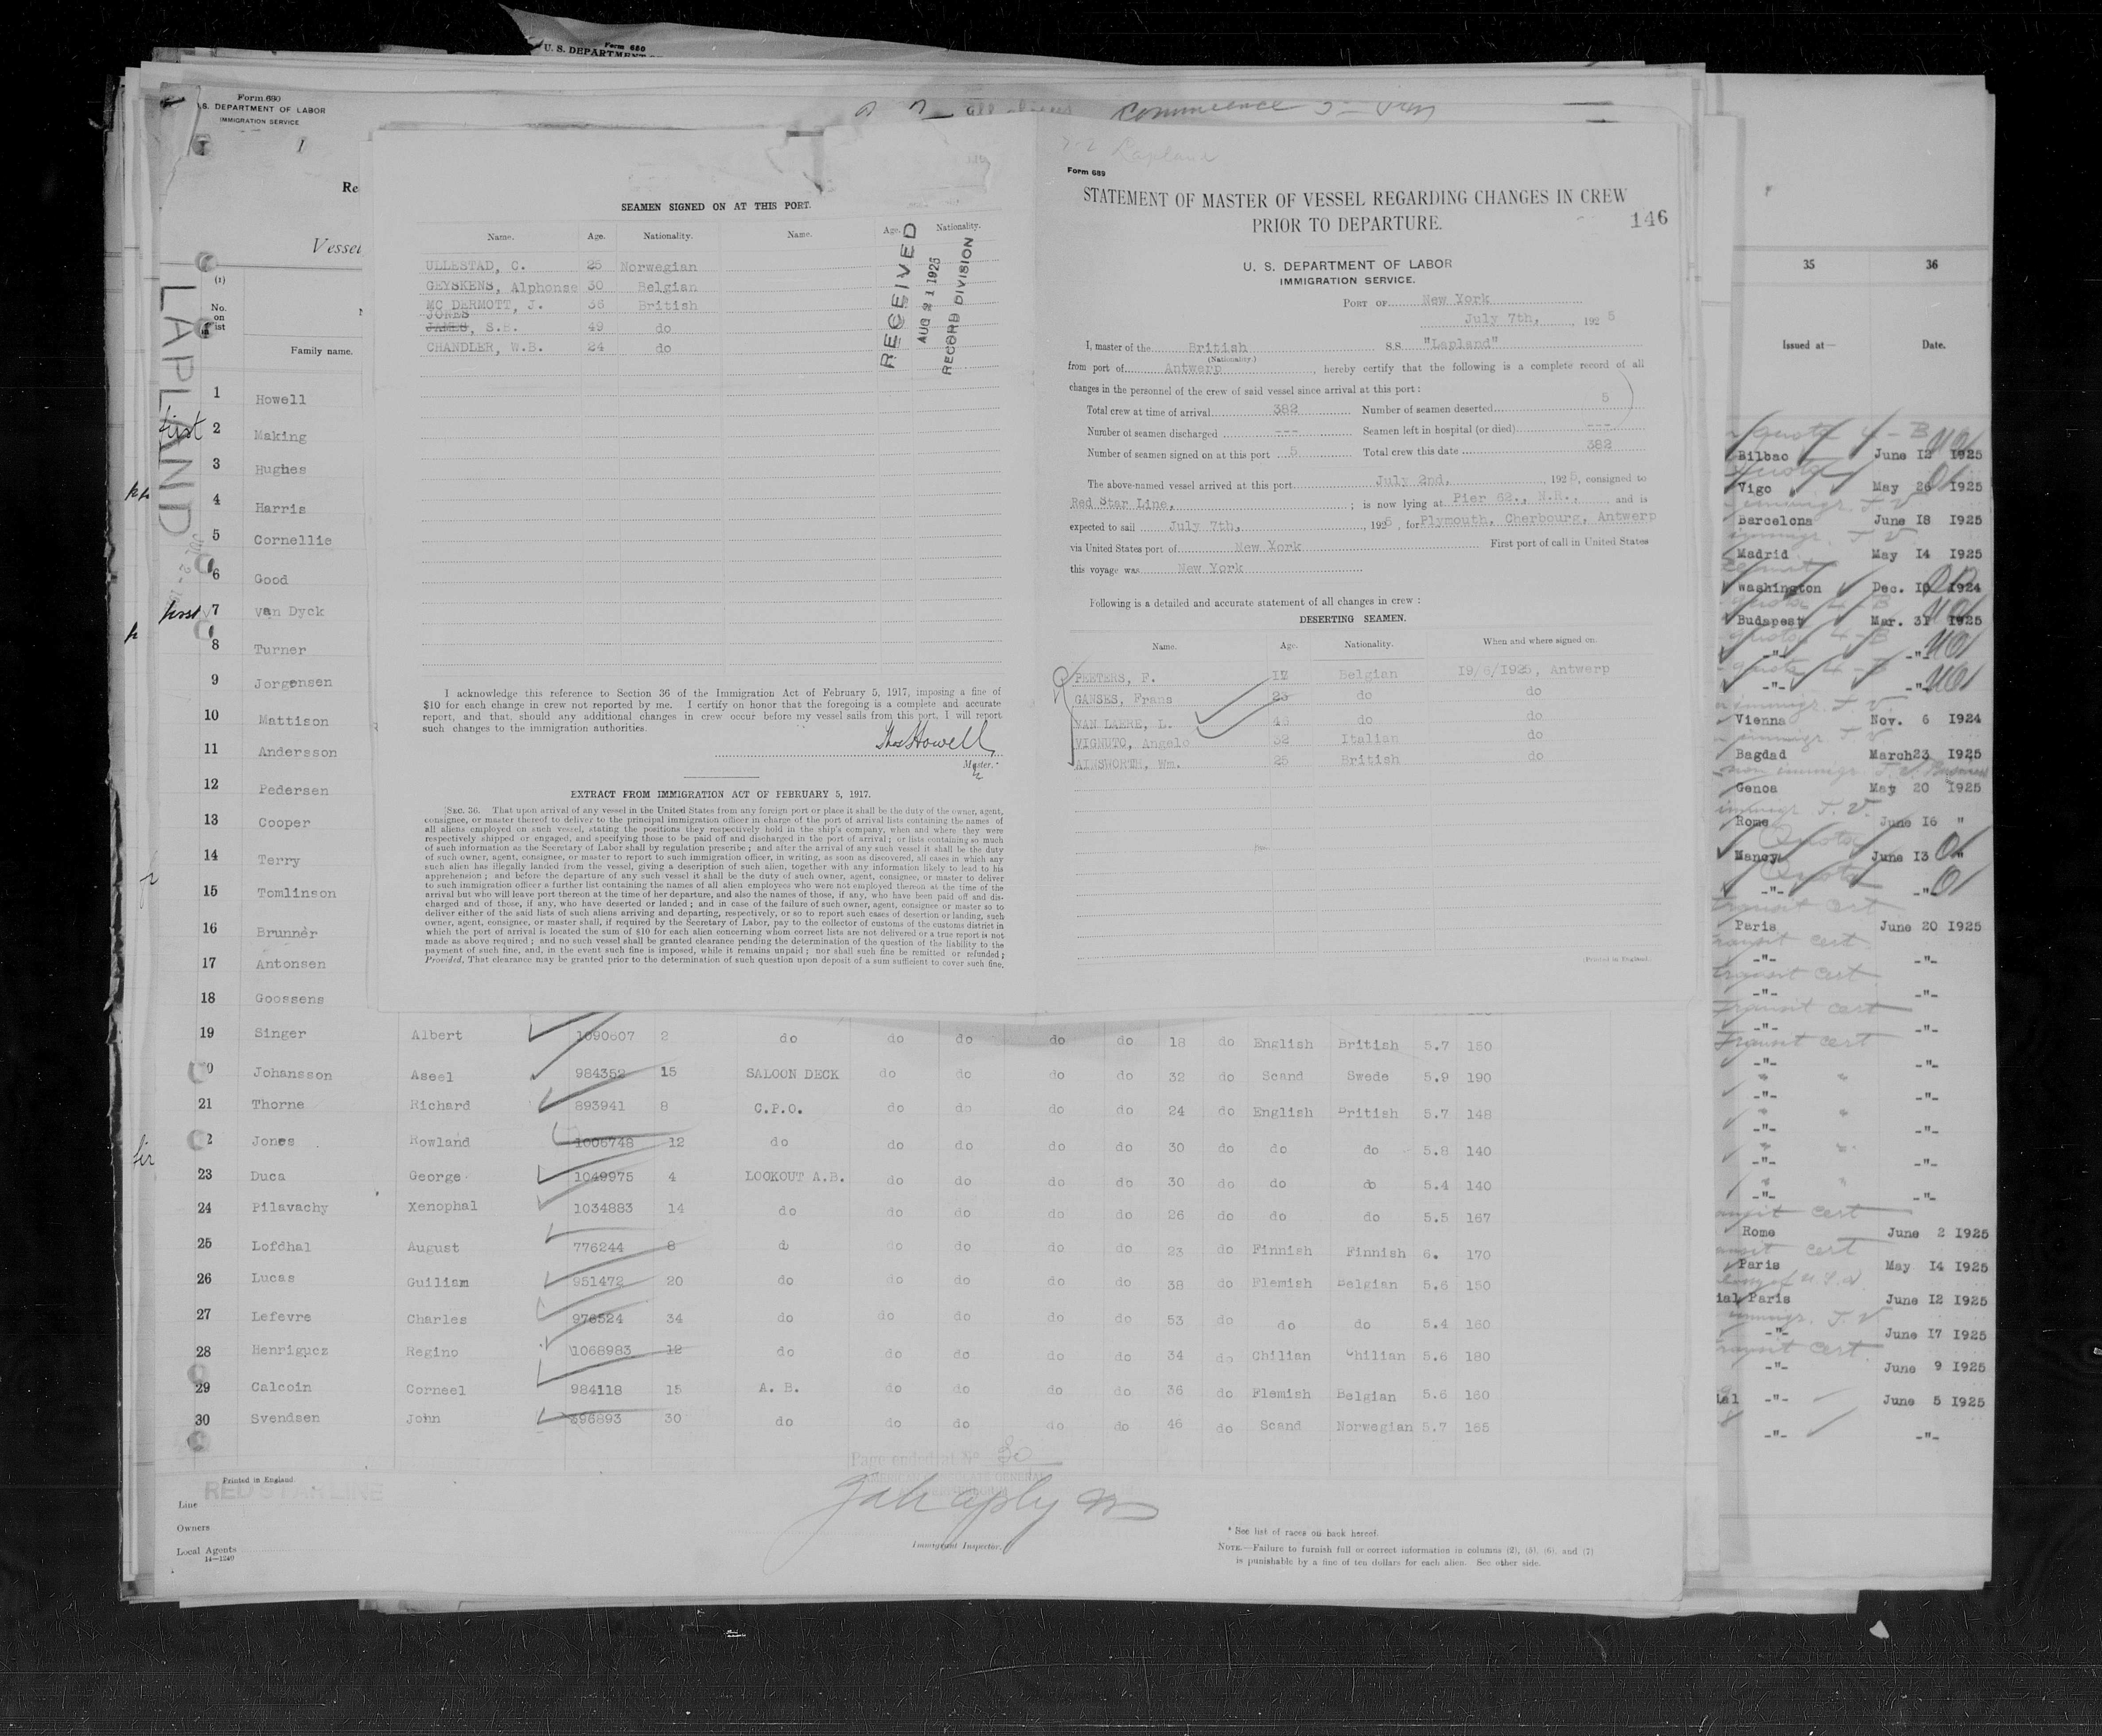 Form 680
U. S. DEPARTMENT OF
Form 680
U.S. DEPARTMENT OF LABOR
IMMIGRATION SERVICE
1
Re
Vessel
LAPLAND
(1)
No. on list
Family name.
1 Howell
first 2 Making
3 Hughes
4 Harris
5 Cornellie
6 Good
first 7 van Dyck
8 Turner
9 Jorgensen
10 Mattison
11 Andersson
12 Pedersen
13 Cooper
14 Terry
15 Tomlinson
16 Brunner
17 Antonsen
18 Goossens
SEAMEN SIGNED ON AT THIS PORT.
Name. Age. Nationality. Name. Age. Nationality.
ULLESTAD, C. 25 Norwegian
GEYSKENS, Alphonse 30 Belgian
MC DERMOTT, J. 36 British
JONES
JAMES, S.B. 49 do
CHANDLER, W.B. 24 do
RECEIVED
AUG 21 1925
RECORD DIVISION
I acknowledge this reference to Section 36 of the Immigration Act of February 5, 1917, imposing a fine of
$10 for each change in crew not reported by me. I certify on honor that the foregoing is a complete and accurate
report, and that, should any additional changes in crew occur before my vessel sails from this port, I will report
such changes to the immigration authorities.
Thos Howell
Master.
EXTRACT FROM IMMIGRATION ACT OF FEBRUARY 5, 1917.
SEC. 36. That upon arrival of any vessel in the United States from any foreign port or place it shall be the duty of the owner, agent,
consignee, or master thereof to deliver to the principal immigration officer in charge of the port of arrival lists containing the names of
all aliens employed on such vessel, stating the positions they respectively hold in the ship's company, when and where they were
respectively shipped or engaged, and specifying those to be paid off and discharged in the port of arrival; or lists containing so much
of such information as the Secretary of Labor shall by regulation prescribe; and after the arrival of any such vessel it shall be the duty
of such owner, agent, consignee, or master to report to such immigration officer, in writing, as soon as discovered, all cases in which any
such alien has illegally landed from the vessel, giving a description of such alien, together with any information likely to lead to his
apprehension; and before the departure of any such vessel it shall be the duty of such owner, agent, consignee, or master to deliver
to such immigration officer a further list containing the names of all alien employees who were not employed thereon at the time of the
arrival but who will leave port thereon at the time of her departure, and also the names of those, if any, who have been paid off and dis-
charged and of those, if any, who have deserted or landed; and in case of the failure of such owner, agent, consignee or master so to
deliver either of the said lists of such aliens arriving and departing, respectively, or so to report such cases of desertion or landing, such
owner, agent, consignee, or master shall, if required by the Secretary of Labor, pay to the collector of customs of the customs district in
which the port of arrival is located the sum of $10 for each alien concerning whom correct lists are not delivered or a true report is not
made as above required; and no such vessel shall be granted clearance pending the determination of the question of the liability to the
payment of such fine, and, in the event such fine is imposed, while it remains unpaid; nor shall such fine be remitted or refunded;
Provided, That clearance may be granted prior to the determination of such question upon deposit of a sum sufficient to cover such fine.
Lapland
Form 689
STATEMENT OF MASTER OF VESSEL REGARDING CHANGES IN CREW
PRIOR TO DEPARTURE.
146
U. S. DEPARTMENT OF LABOR
IMMIGRATION SERVICE.
PORT OF New York
July 7th, 1925
I, master of the British S.S. "Lapland"
(Nationality.)
from port of Antwerp, hereby certify that the following is a complete record of all
changes in the personnel of the crew of said vessel since arrival at this port:
Total crew at time of arrival 382 Number of seamen deserted 5
Number of seamen discharged --- Seamen left in hospital (or died) ---
Number of seamen signed on at this port 5 Total crew this date 382
The above-named vessel arrived at this port July 2nd, 1925, consigned to
Red Star Line, ; is now lying at Pier 62., N.R., and is
expected to sail July 7th, 1925, for Plymouth, Cherbourg, Antwerp
via United States port of New York First port of call in United States
this voyage was New York
Following is a detailed and accurate statement of all changes in crew:
DESERTING SEAMEN.
Name. Age. Nationality. When and where signed on.
PEETERS, F. 17 Belgian 19/6/1925, Antwerp
GANSES, Frans 23 do do
VAN LAERE, L. 45 do do
VIGNUTO, Angelo 32 Italian do
AINSWORTH, Wm. 25 British do
(Printed in England.)
19 Singer Albert 1090607 2 do do do do do 18 do English British 5.7 150
20 Johansson Aseel 984352 15 SALOON DECK do do do do 32 do Scand Swede 5.9 190
21 Thorne Richard 893941 8 C.P.O. do do do do 24 do English British 5.7 148
22 Jones Rowland 1006748 12 do do do do do 30 do do do 5.8 140
23 Duca George 1049975 4 LOOKOUT A.B. do do do do 30 do do do 5.4 140
24 Pilavachy Xenophal 1034883 14 do do do do do 26 do do do 5.5 167
25 Lofdhal August 776244 8 do do do do do 23 do Finnish Finnish 6. 170
26 Lucas Guiliam 951472 20 do do do do do 38 do Flemish Belgian 5.6 150
27 Lefevre Charles 976524 34 do do do do do 53 do do do 5.4 160
28 Henriguez Regino 1068983 12 do do do do do 34 do Chilian Chilian 5.6 180
29 Calcoin Corneel 984118 15 A. B. do do do do 36 do Flemish Belgian 5.6 160
30 Svendsen John 896893 30 do do do do do 46 do Scand Norwegian 5.7 165
Page ended at No 30
Printed in England
RED STAR LINE
Line
Owners
Local Agents
14—1240
Immigrant Inspector.
* See list of races on back hereof.
NOTE.—Failure to furnish full or correct information in columns (2), (5), (6), and (7)
is punishable by a fine of ten dollars for each alien. See other side.
35 36
Issued at— Date.
Bilbao June 12 1925
Vigo May 26 1925
Barcelona June 18 1925
Madrid May 14 1925
Washington Dec. 10 1924
Budapest Mar. 31 1925
-"- -"-
-"- -"-
Vienna Nov. 6 1924
Bagdad March 23 1925
Genoa May 20 1925
Rome June 16 "
Quota
Nancy June 13 "
Quota
-"- -"-
transit cert
Paris June 20 1925
transit cert
-"- -"-
transit cert
-"- -"-
transit cert
-"- -"-
transit cert
-"- -"-
-"- -"-
-"- -"-
-"- -"-
-"- -"-
transit cert
Rome June 2 1925
transit cert
Paris May 14 1925
Paris June 12 1925
-"- June 17 1925
transit cert
-"- June 9 1925
-"- June 5 1925
-"- -"-